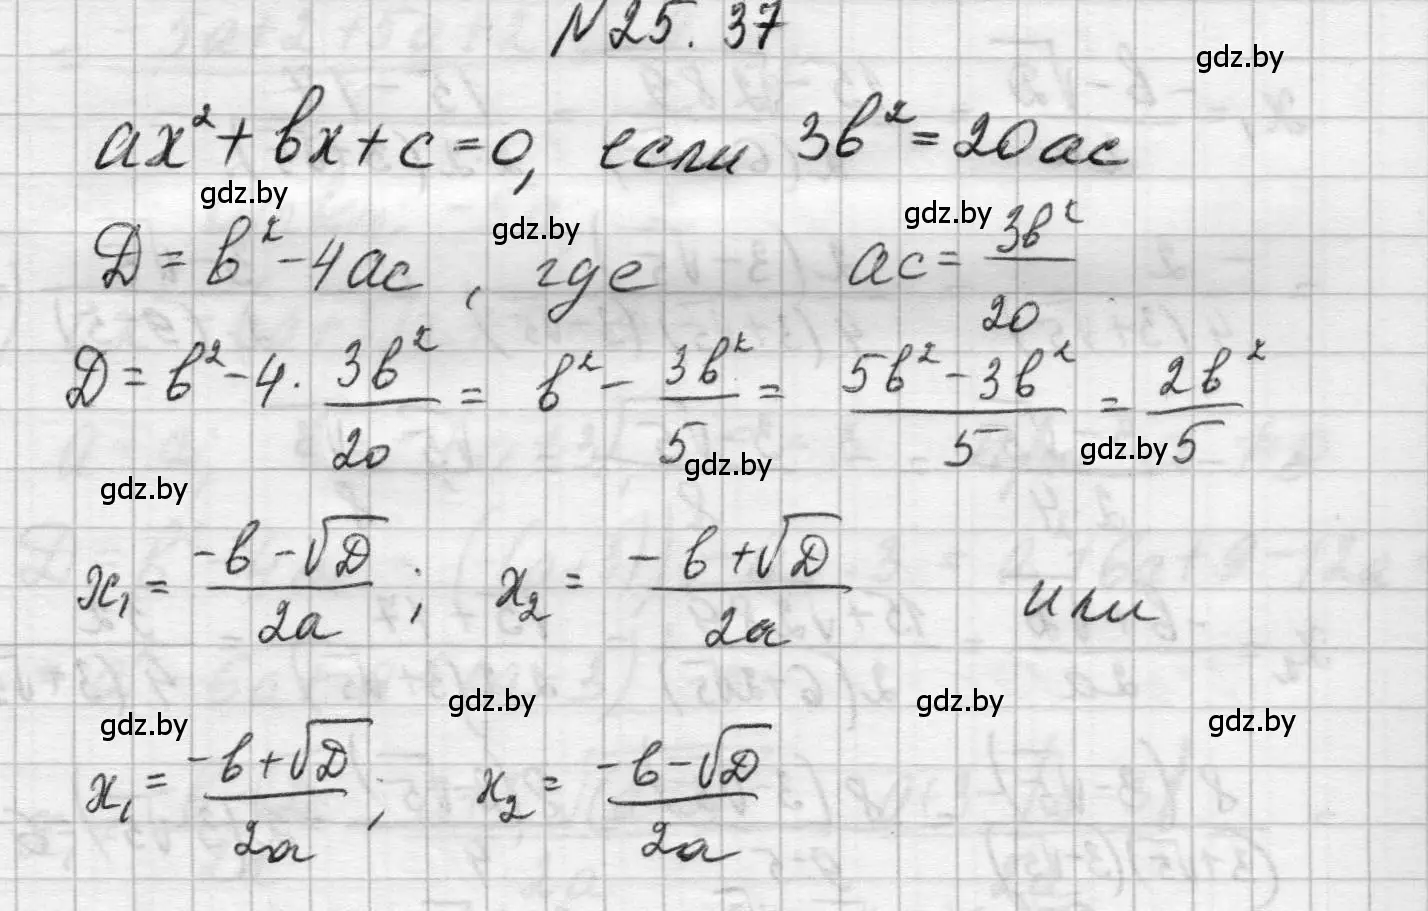 №25.37
gdz.by
ax² + bx + c = 0, если 3b² = 20ac
gdz.by gdz.by gdz.by
D = b² - 4ac, где ac = 3b²/20
D = b² - 4 · 3b²/20 = b² - 3b²/5 = (5b² - 3b²)/5 = 2b²/5
gdz.by gdz.by gdz.by
x₁ = (-b - √D)/2a ; x₂ = (-b + √D)/2a или
gdz.by gdz.by gdz.by gdz.by
x₁ = (-b + √D)/2a ; x₂ = (-b - √D)/2a